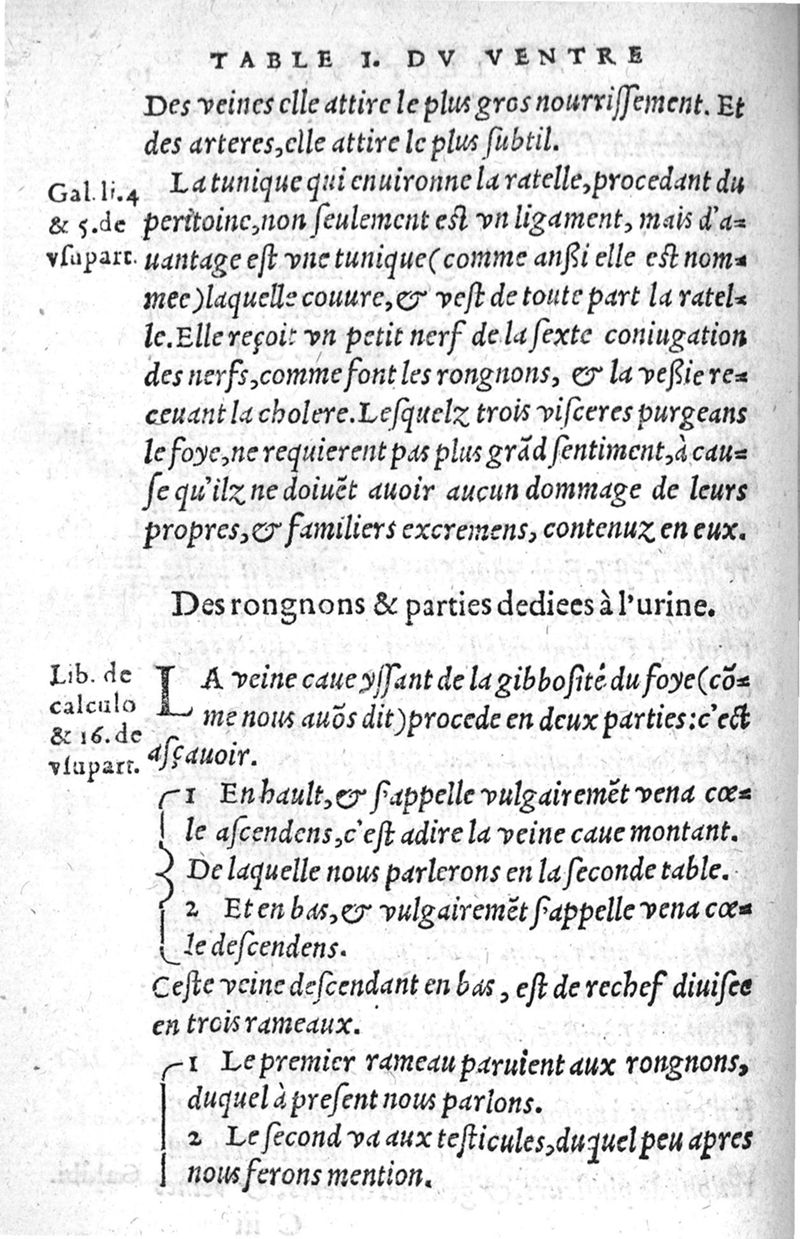 TABLE I. DV VENTRE
Des veines elle attire le plus gros nourriſſement. Et
des arteres, elle attire le plus ſubtil.
Gal. li. 4
& 5. de
vſu part.
La tunique qui enuironne la ratelle, procedant du
peritoine, non ſeulement eſt vn ligament, mais d'a-
uantage eſt vne tunique (comme anßi elle eſt nom-
mee) laquelle couure, & veſt de toute part la ratel-
le. Elle reçoit vn petit nerf de la ſexte coniugation
des nerfs, comme font les rongnons, & la veßie re-
ceuant la cholere. Leſquelz trois viſceres purgeans
le foye, ne requierent pas plus grãd ſentiment, à cau-
ſe qu'ilz ne doiuẽt auoir aucun dommage de leurs
propres, & familiers excremens, contenuz en eux.
Des rongnons & parties dediees à l'urine.
Lib. de
calculo
& 16. de
vſu part.
LA veine caue yſſant de la gibboſité du foye (cõ-
me nous auõs dit) procede en deux parties: c'eſt
aſçauoir.
1 En hault, & ſ'appelle vulgairemẽt vena cœ-
le aſcendens, c'eſt adire la veine caue montant.
De laquelle nous parlerons en la ſeconde table.
2 Et en bas, & vulgairemẽt ſ'appelle vena cœ-
le deſcendens.
Ceſte veine deſcendant en bas, eſt de rechef diuiſee
en trois rameaux.
1 Le premier rameau paruient aux rongnons,
duquel à preſent nous parlons.
2 Le ſecond va aux teſticules, duquel peu apres
nous ferons mention.